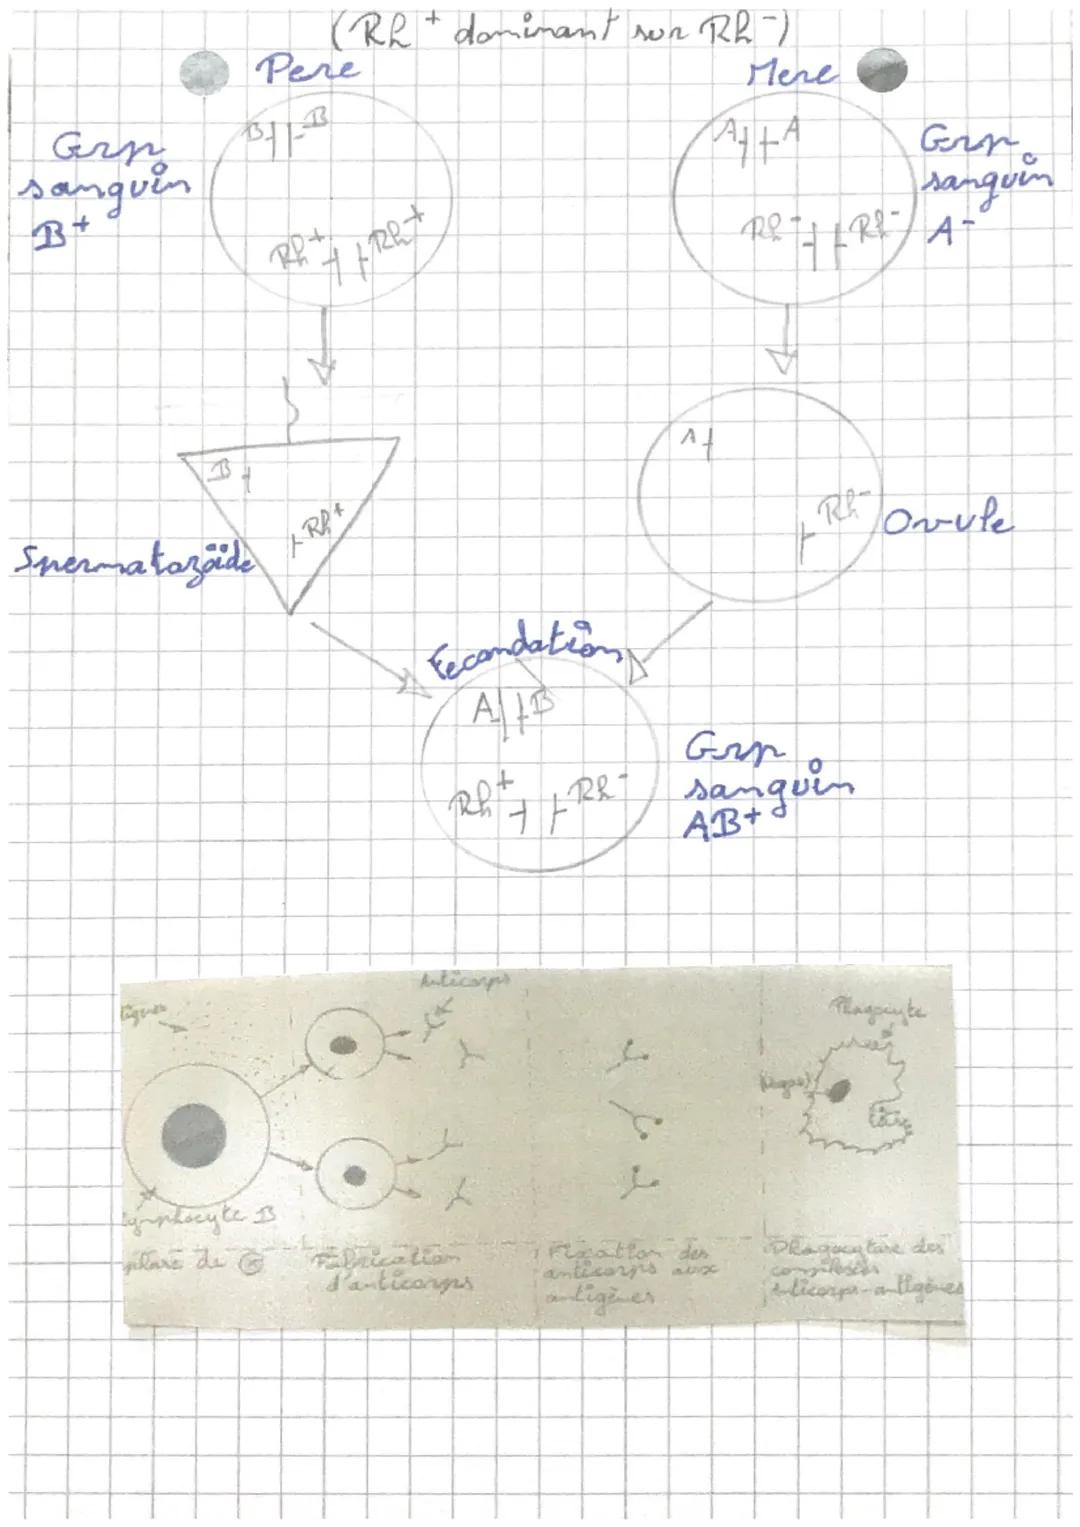 (Rh+ dominant sur Rh-)
Pere
Mere
B B
A A
Grp
sanguin
B+
Grp
sanguin
A-
Rh+ Rh+
Rh- Rh-
B
Rh+
A
Rh-
Spermatozoïde
Ovule
Fecondation
A B
Rh+ Rh-
Grp
sanguin
AB+
Anticorps
Phagocyte
Lymphocyte B
phase de
Fabrication
d'anticorps
Fixation des
anticorps aux
antigènes
Phagocytose des
complexes
anticorps-antigènes